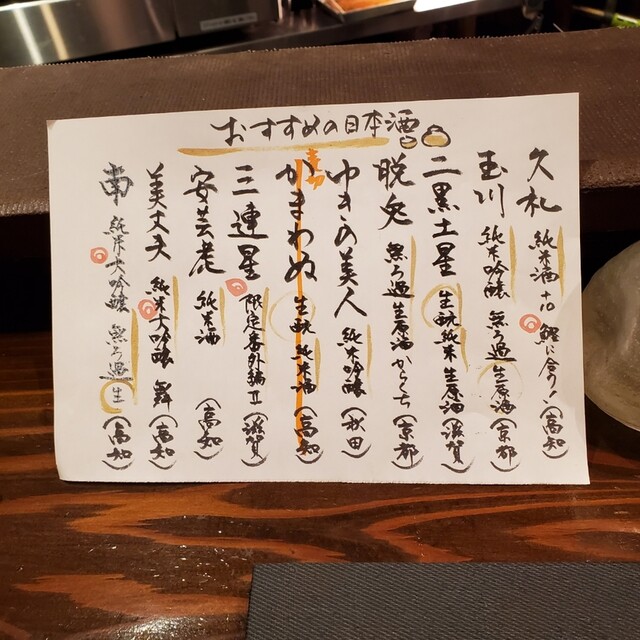 おすすめの日本酒
久礼 純米酒 +10 鰹に合う!（高知）
玉川 純米吟醸 無ろ過 生原酒（京都）
二黒土星 生酛 純米 生原酒（滋賀）
脱兎 無ろ過 生原酒 からくち（京都）
ゆきの美人 純米吟醸（秋田）
かまわぬ 生酛 純米酒（高知）
三連星 限定番外編Ⅱ（滋賀）
安芸虎 純米酒（高知）
美丈夫 純米大吟醸 舞（高知）
南 純米大吟醸 無ろ過 生（高知）